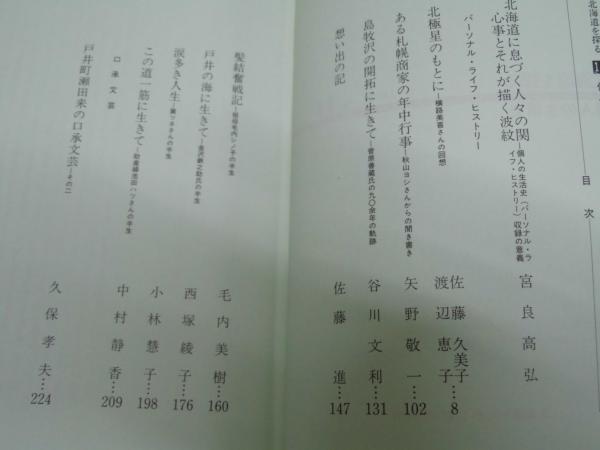 北海道を探る
目次
北海道に息づく人々の関心事とそれが描く波紋
―個人の生活史(パーソナル・ライフ・ヒストリー)収録の意義
宮良高弘
パーソナル・ライフ・ヒストリー
北極星のもとに―横路美喜さんの回想
佐藤久美子
渡辺恵子…8
ある札幌商家の年中行事―秋山ヨシさんからの聞き書き
矢野敬一…102
島牧沢の開拓に生きて―菅原善蔵氏の九〇余年の軌跡
谷川文利…131
想い出の記
佐藤進…147
髪結奮戦記―祖母毛内シノ子の半生
毛内美樹…160
戸井の海に生きて―金沢新之助氏の半生
西塚綾子…176
涙多き人生
小林慧子…198
この道一筋に生きて―助産婦池田ハツさんの半生
中村静香…209
口承文芸
戸井町瀬田来の口承文芸―その二
久保孝夫…224